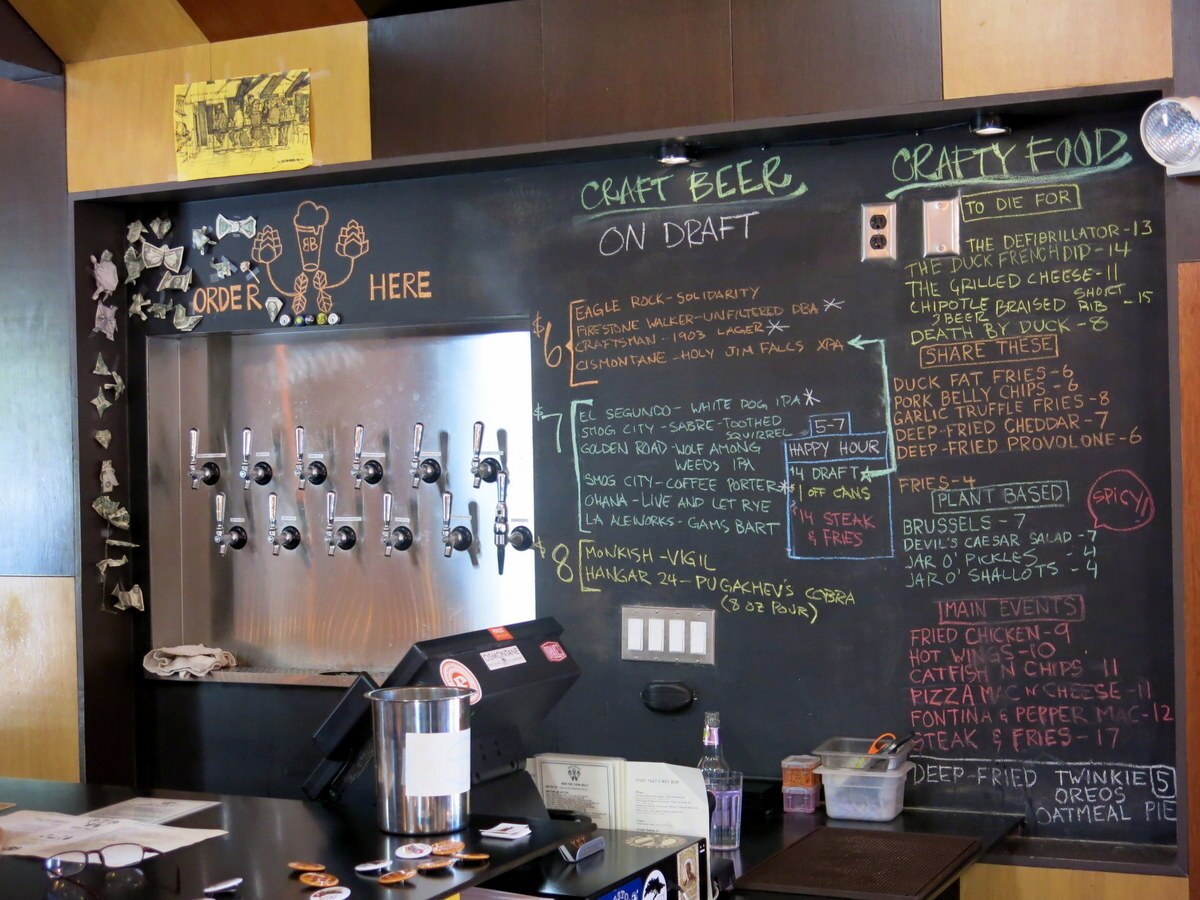 ORDER HERE
BB
CRAFT BEER
ON DRAFT
$6
EAGLE ROCK-SOLIDARITY
FIRESTONE WALKER-UNFILTERED DBA *
CRAFTSMAN-1903 LAGER *
CISMONTANE-HOLY JIM FALLS XPA
$7
EL SEGUNDO- WHITE DOG IPA *
SMOG CITY-SABRE-TOOTHED
SQUIRREL
GOLDEN ROAD-WOLF AMONG
WEEDS IPA
SMOG CITY-COFFEE PORTER *
OHANA-LIVE AND LET RYE
LA ALEWORKS- GAMS BART
$8
MONKISH-VIGIL
HANGAR 24-PUGACHEV'S COBRA
(8 OZ POUR)
5-7
HAPPY HOUR
$4 DRAFT
$1 OFF CANS
$14 STEAK
& FRIES
CRAFTY FOOD
TO DIE FOR
THE DEFIBRILLATOR-13
THE DUCK FRENCH DIP-14
THE GRILLED CHEESE-11
CHIPOTLE BRAISED SHORT
BEER RIB -15
DEATH BY DUCK-8
SHARE THESE
DUCK FAT FRIES-6
PORK BELLY CHIPS-6
GARLIC TRUFFLE FRIES-8
DEEP-FRIED CHEDDAR-7
DEEP-FRIED PROVOLONE-6
FRIES-4
PLANT BASED
SPICY!
BRUSSELS-7
DEVIL'S CAESAR SALAD-7
JAR O' PICKLES -4
JAR O' SHALLOTS -4
MAIN EVENTS
FRIED CHICKEN-9
HOT WINGS-10
CATFISH N CHIPS 11
PIZZA MAC N CHEESE-11
FONTINA & PEPPER MAC-12
STEAK & FRIES-17
DEEP-FRIED TWINKIE 5
OREOS
OATMEAL PIE
CISMONTANE